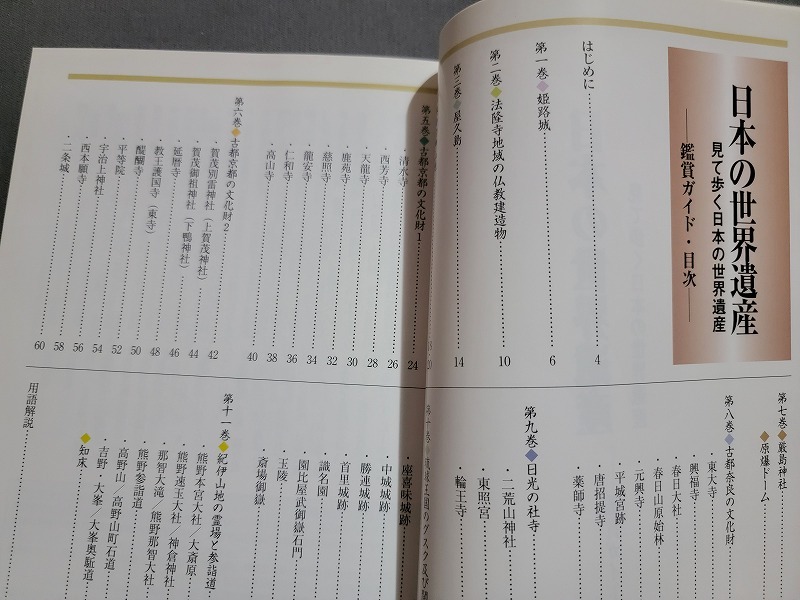 日本の世界遺産
見て歩く日本の世界遺産
――鑑賞ガイド・目次――
はじめに……4
第一巻◆姫路城……6
第二巻◆法隆寺地域の仏教建造物……10
第三巻◆屋久島……14
18
20
第七巻◆厳島神社
◆原爆ドーム
第八巻◆古都奈良の文化財
・東大寺
・興福寺
・春日大社
・春日山原始林
・元興寺
・平城宮跡
・唐招提寺
・薬師寺
第九巻◆日光の社寺
・二荒山神社
・東照宮
・輪王寺
第五巻◆古都京都の文化財1
・清水寺……24
・西芳寺……26
・天龍寺……28
・鹿苑寺……30
・慈照寺……32
・龍安寺……34
・仁和寺……36
・高山寺……38
第六巻◆古都京都の文化財2……40
・賀茂別雷神社(上賀茂神社)……42
・賀茂御祖神社(下鴨神社)……44
・延暦寺……46
・教王護国寺(東寺)……48
・醍醐寺……50
・平等院……52
・宇治上神社……54
・西本願寺……56
・二条城……58
60
・座喜味城跡
・中城城跡
・勝連城跡
・首里城跡
・識名園
・園比屋武御嶽石門
・玉陵
・斎場御嶽
第十一巻◆紀伊山地の霊場と参詣道
・熊野本宮大社/大斎原
・熊野速玉大社/神倉神社
・那智大滝/熊野那智大社
・熊野参詣道
・高野山/高野山町石道
・吉野・大峯/大峯奥駈道
◆知床
用語解説